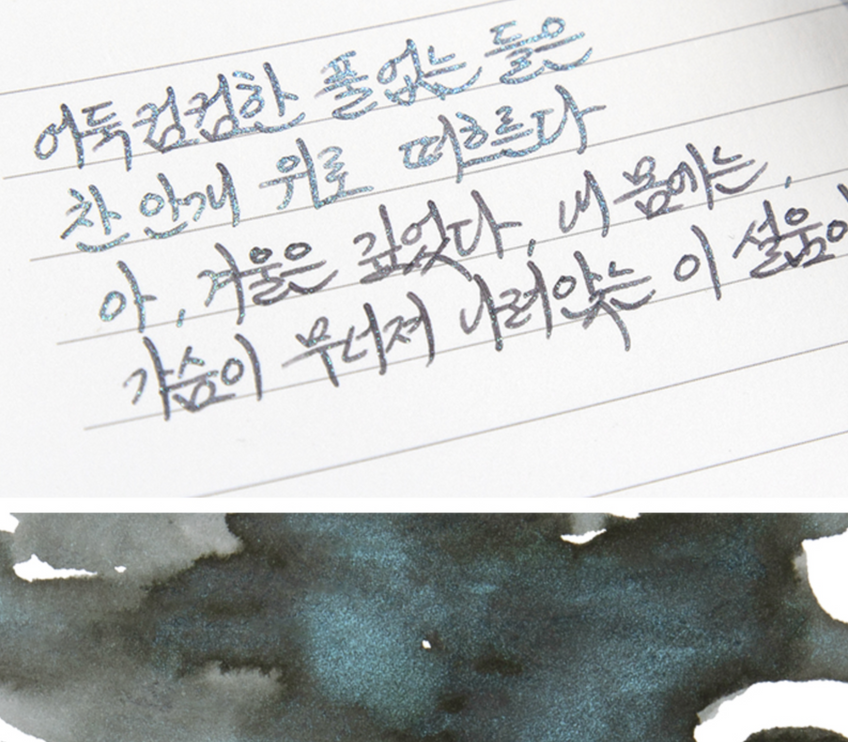 어둑컴컴한 풀 없는 들은
찬 안개 위로 떠흐르다
아, 겨울은 깊었다, 내 몸에는,
가슴이 무너져 나려앉는 이 설움아